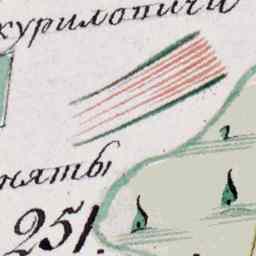 курилопичи
няты
251.